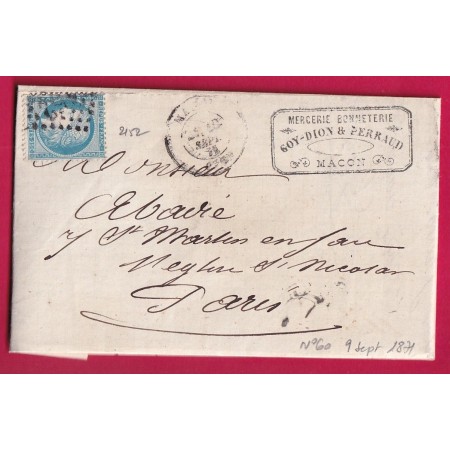 2152
SEPT
MERCERIE BONNETERIE
GOY-DION & PERRAUD
MACON
Monsieur
Abavié
St Martin en face
l'église St Nicolas
Paris
N°60 9 Sept 1871